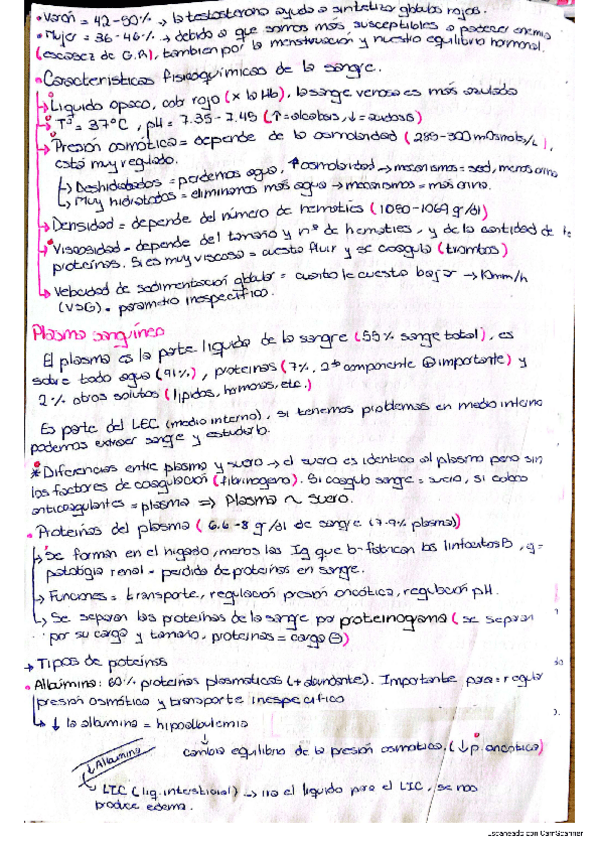 • Varón = 42-50% → la testosterona ayuda a sintetizar glóbulos rojos.
• Mujer = 36-46% → debido a que somos más susceptibles a padecer anemia
(escasez de G.R), también por la menstruación y nuestro equilibrio hormonal.
• Características fisicoquímicas de la sangre.
→ Líquido opaco, color rojo (x la Hb), la sangre venosa es más oscura
→ Tª = 37°C, pH = 7.35 - 7.45 (↑ = alcalosis, ↓ = acidosis)
→ Presión osmótica = depende de la osmolaridad (285-300 mOsmols/L),
está muy regulado.
↳ Deshidratados = perdemos agua, ↑osmolaridad → mecanismos = sed, menos orina
↳ Muy hidratados = eliminamos más agua → mecanismos = más orina.
→ Densidad = depende del número de hematíes (1050-1069 g/dl)
→ Viscosidad = depende del tamaño y nº de hematíes, y de la cantidad de
proteínas. Si es muy viscosa = cuesta fluir y se coagula (trombos)
→ Velocidad de sedimentación globular = cuánto le cuesta bajar → 10mm/h
(VSG) = parámetro inespecífico.
Plasma sanguíneo
El plasma es la parte líquida de la sangre (55% sangre total), es
sobre todo agua (91%), proteínas (7%, 2do componente ⊕ importante) y
2% otros solutos (lípidos, hormonas, etc.)
Es parte del LEC (medio interno), si tenemos problemas en medio interno
podemos extraer sangre y estudiarlo.
* Diferencias entre plasma y suero → el suero es idéntico al plasma pero sin
los factores de coagulación (fibrinógeno). Si coagulo sangre = suero, si coloco
anticoagulantes = plasma ⇒ Plasma ~ suero.
• Proteínas del plasma (6.6-8 g/dl de sangre (7-9% plasma))
→ Se forman en el hígado, menos las Ig que la fabrican los linfocitos B,
patología renal = pérdida de proteínas en sangre.
→ Funciones = transporte, regulación presión oncótica, regulación pH.
↳ Se separan las proteínas de la sangre por proteinograma (se separan
por su carga y tamaño, proteínas = carga ⊖)
→ Tipos de proteínas
• Albúmina: 60% proteínas plasmáticas (+ abundante). Importante para = regular
presión osmótica y transporte inespecífico
↳ ↓ la albúmina = hipoalbulemia
↓
cambia equilibrio de la presión osmótica. (↓p. oncótica)
↓Albúmina
↳ LIC (líq. intersticial) → irá el líquido para el LIC, se nos
produce edema.
Escaneado con CamScanner